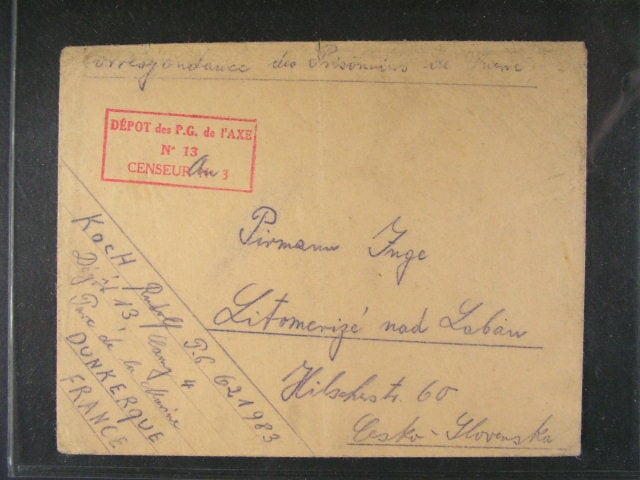 Correspondance des Prisonniers de Guerre
DÉPOT des P.G. de l'AXE
N° 13
CENSEUR N° 3
Pirmann Inge
Litomerizé nad Laban
Hilscherstr. 60
Cesko-Slovenska
KocH Rudolf P.G 621983
Dépôt 13, Camp 4
Parc de la Marine
DUNKERQUE
FRANCE